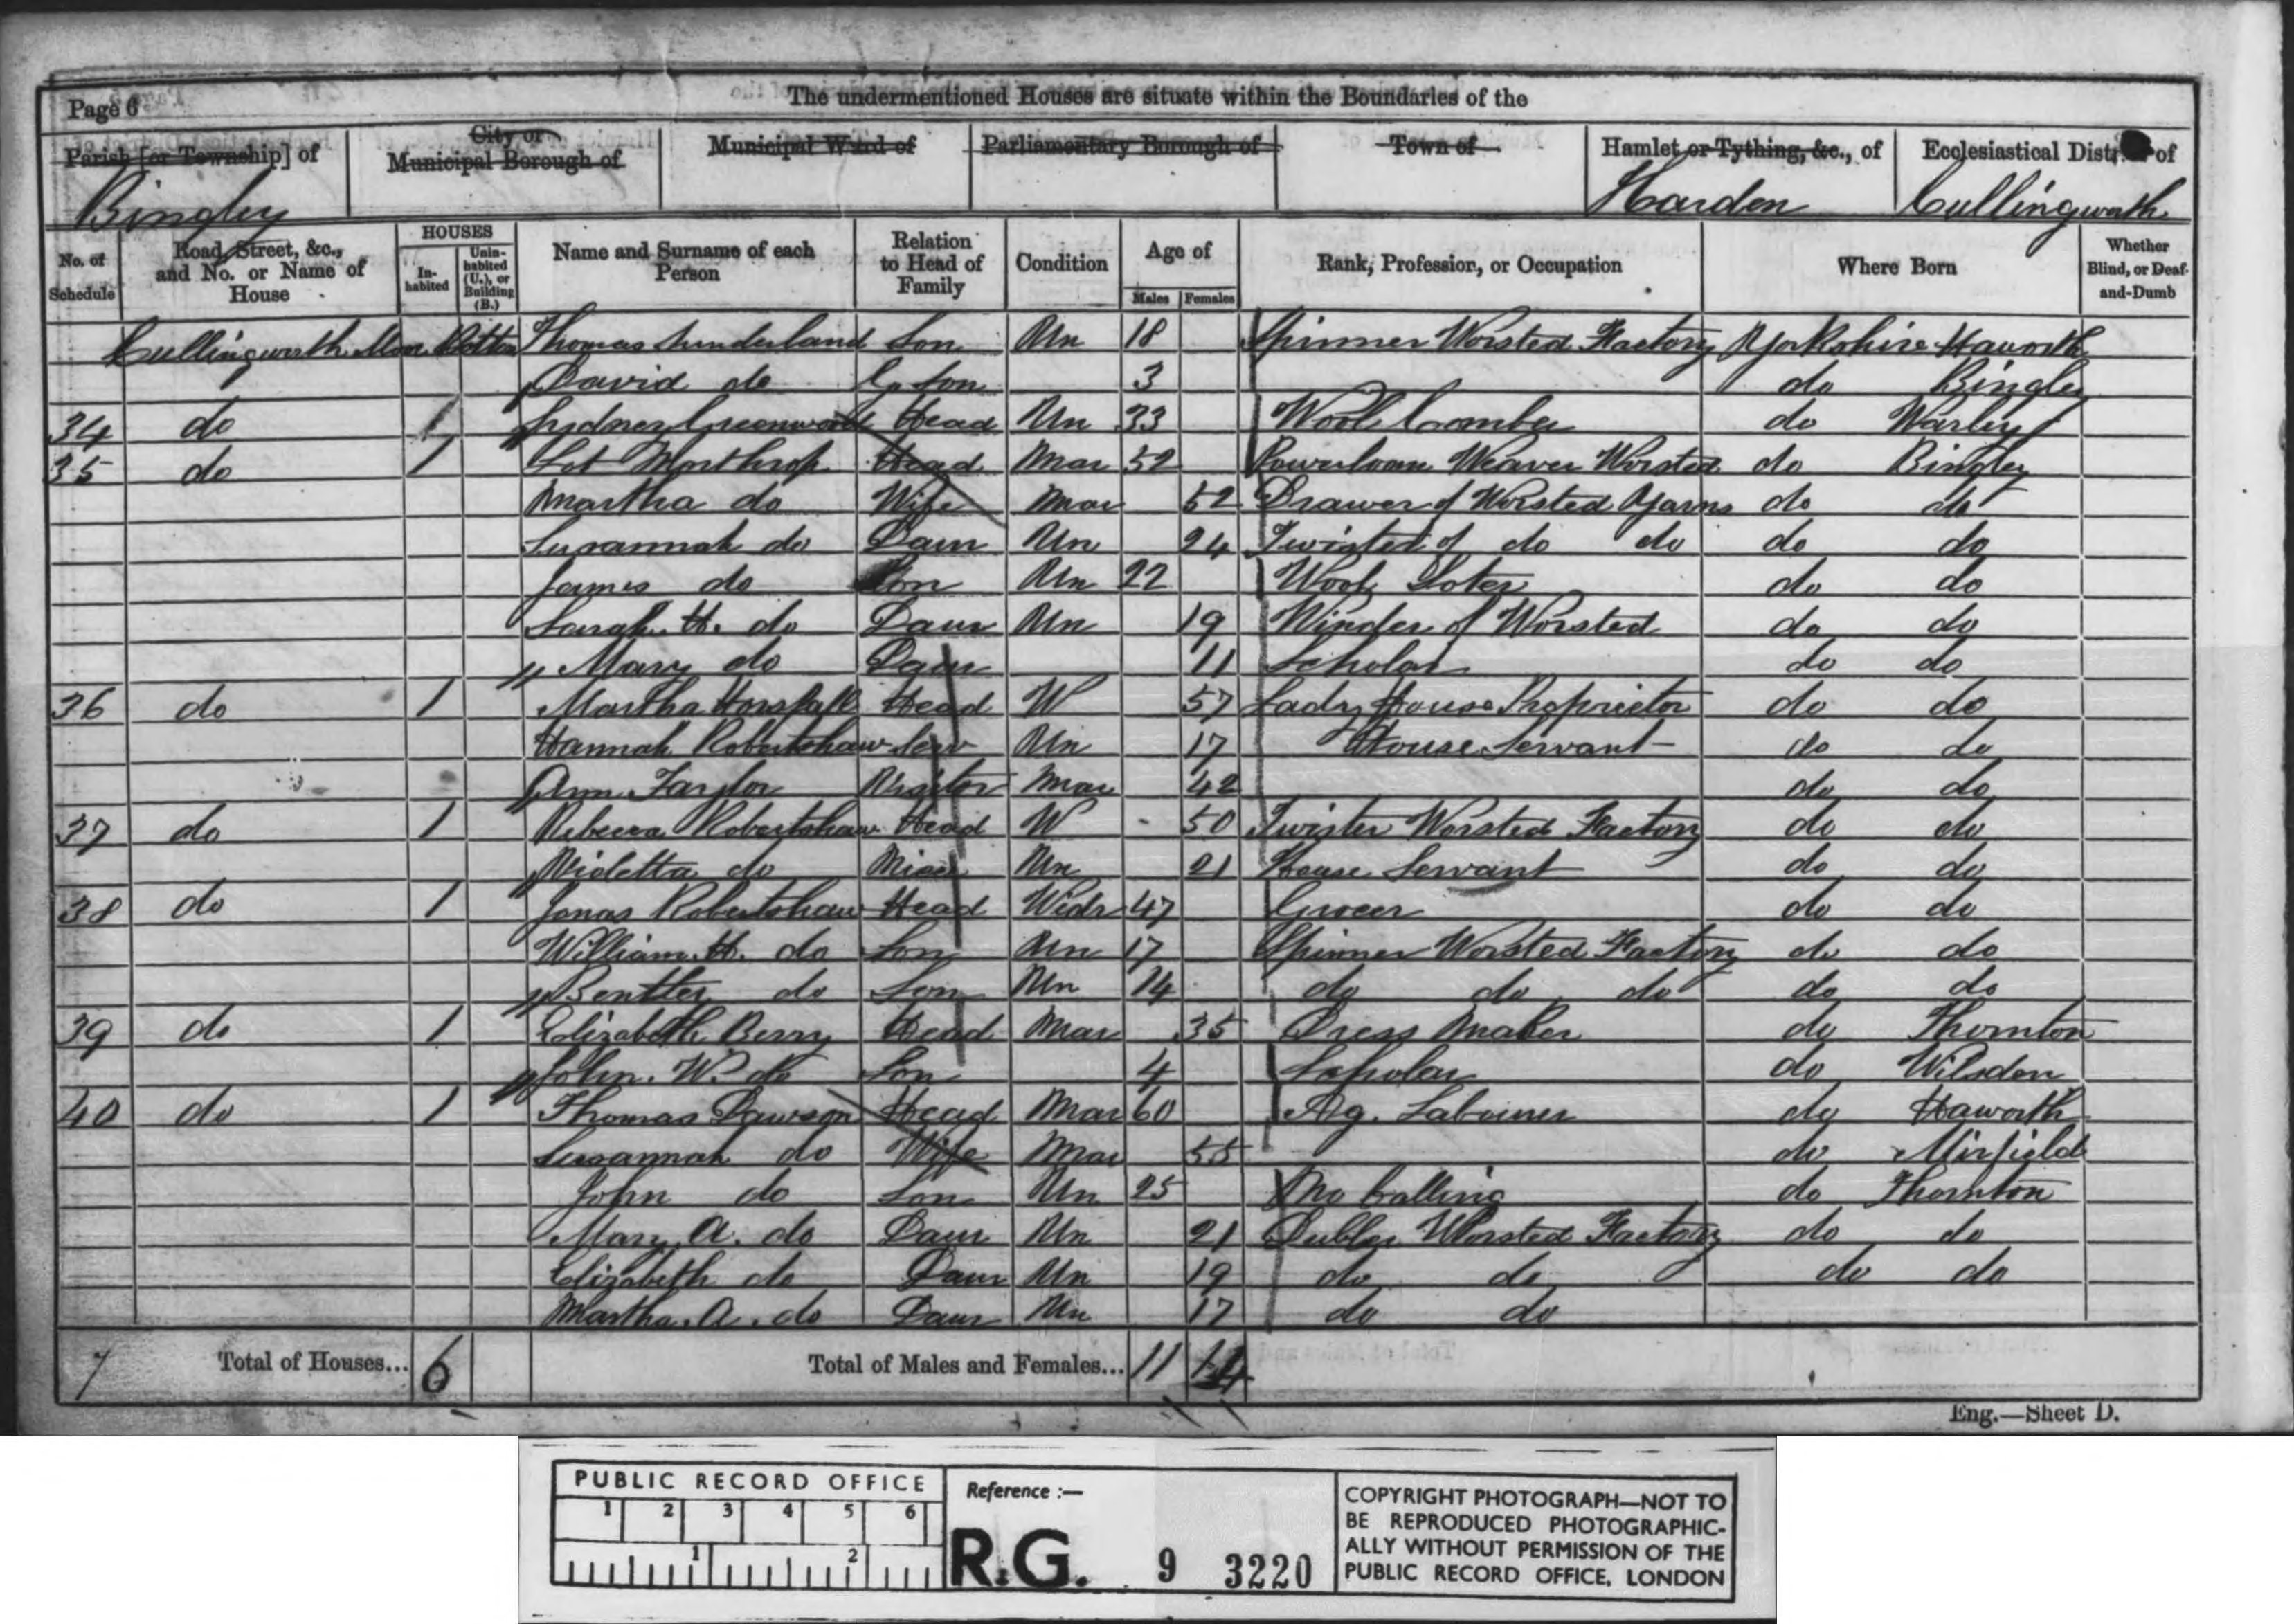 Page 6
The undermentioned Houses are situate within the Boundaries of the
Parish [or Township] of
City or
Municipal Borough of
Municipal Ward of
Parliamentary Borough of
Town of
Hamlet or Tything, &c., of
Ecclesiastical District of
Bingley Harden Cullingworth
No. of Schedule
Road, Street, &c., and No. or Name of House
HOUSES
In-habited
Unin-habited (U.), or Building (B.)
Name and Surname of each Person
Relation to Head of Family
Condition
Age of
Males Females
Rank, Profession, or Occupation
Where Born
Whether Blind, or Deaf-and-Dumb
Cullingworth Thomas Sunderland Son Un 18 Spinner Worsted Factory Yorkshire Haworth
David do G. Son 3 do Bingley
34 do 1 Sydney Greenwood Head Un 33 Wool Comber do Warley
35 do 1 Lot Northrop Head Mar 52 Powerloom Weaver Worsted do Bingley
Martha do Wife Mar 52 Drawer of Worsted Yarns do do
Susannah do Daur Un 24 Twister of do do do do
James do Son Un 22 Wool Soter do do
Sarah H. do Daur Un 19 Winder of Worsted do do
Mary do Daur 11 Scholar do do
36 do 1 Martha Horsfall Head W 57 Lady House Proprietor do do
Hannah Robertshaw Serv Un 17 House Servant do do
Ann Taylor Visitor Mar 42 do do
37 do 1 Rebecca Robertshaw Head W 50 Twister Worsted Factory do do
Violetta do Niece Un 21 House Servant do do
38 do 1 Jonas Robertshaw Head Widr 47 Grocer do do
William H. do Son Un 17 Spinner Worsted Factory do do
Bentley do Son Un 14 do do do do do
39 do 1 Elizabeth Berry Head Mar 35 Dress Maker do Thornton
John. W. do Son 4 Scholar do Wilsden
40 do 1 Thomas Dawson Head Mar 60 Ag. Labourer do Haworth
Susannah do Wife Mar 55 do Mirfield
John do Son Un 25 No Calling do Thornton
Mary A. do Daur Un 21 Dubler Worsted Factory do do
Elizabeth do Daur Un 19 do do do do
Martha. A. do Daur Un 17 do do
7 Total of Houses... 6 Total of Males and Females... 11 14
Eng.—Sheet D.
PUBLIC RECORD OFFICE
1 2 3 4 5 6
1 2
Reference :—
R.G. 9 3220
COPYRIGHT PHOTOGRAPH—NOT TO
BE REPRODUCED PHOTOGRAPHIC-
ALLY WITHOUT PERMISSION OF THE
PUBLIC RECORD OFFICE, LONDON